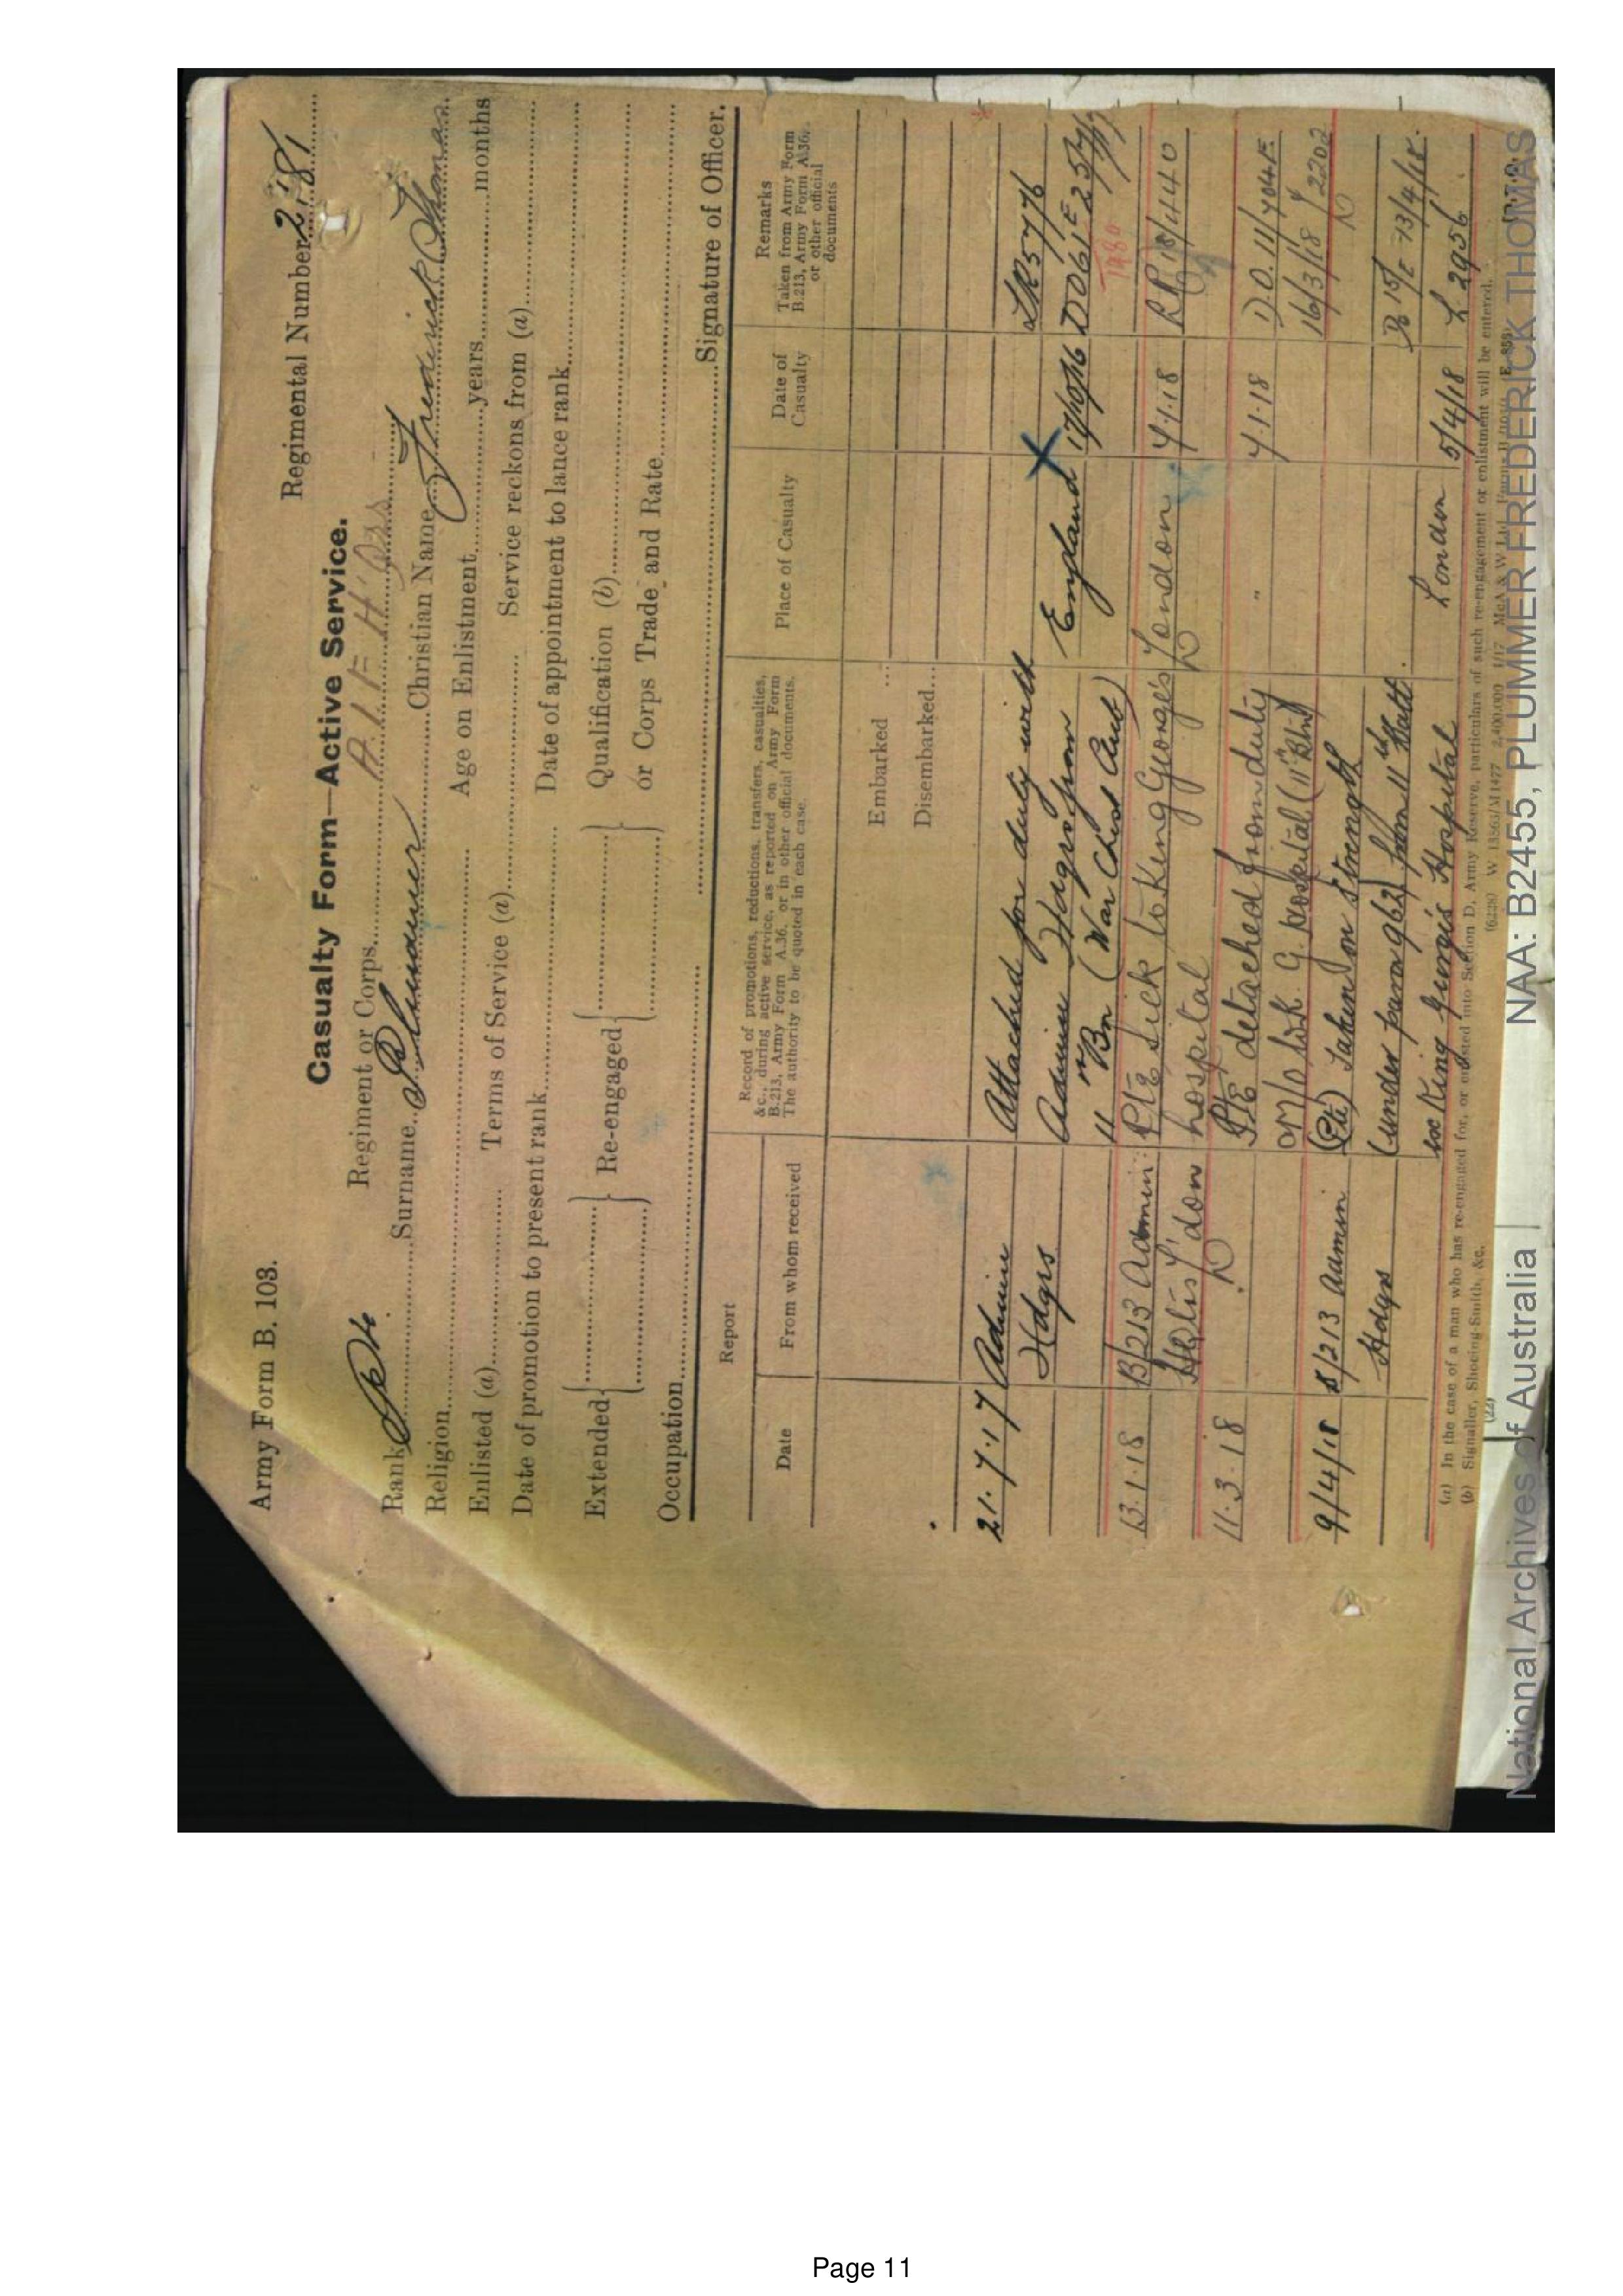 Army Form B. 103.
Regimental Number 2781
Casualty Form—Active Service.
Regiment or Corps A.I.F. H'Qrs
Rank Pte Surname Plummer Christian Name Frederick Thomas
Religion Age on Enlistment years months
Enlisted (a) Terms of Service (a) Service reckons from (a)
Date of promotion to present rank Date of appointment to lance rank
Extended Re-engaged Qualification (b)
or Corps Trade and Rate
Occupation Signature of Officer.
Report
Date
From whom received
Record of promotions, reductions, transfers, casualties, &c., during active service, as reported on Army Form B.213, Army Form A.36, or in other official documents. The authority to be quoted in each case.
Place of Casualty
Date of Casualty
Remarks
Taken from Army Form B.213, Army Form A.36, or other official documents
Embarked
Disembarked
21.7.17 Admin Attached for duty with LR5776
Hdqrs Admin Hdqrs from England
11th Bn (War Chest Club)
13.1.18 B/213 Admin: Pte Sick to King George's London 7.1.18
L'don hospital
11.3.18 Pte detached from duty " 7.1.18 D.O. 11/704E
hospital (11th Btn) 16/3/18
9/4/18 B/213 Admin (Pte) Taken on strength
Hdqrs (under para 962) from 11th Batt. 13/4/18
King George's Hospital London 5/4/18 L. 2956
(a) In the case of a man who has re-engaged for, or enlisted into Section D, Army Reserve, particulars of such re-engagement or enlistment will be entered.
(b) Signaller, Shoeing-Smith, &c.
[P.T.O.
National Archives of Australia
NAA: B2455, PLUMMER FREDERICK THOMAS
Page 11